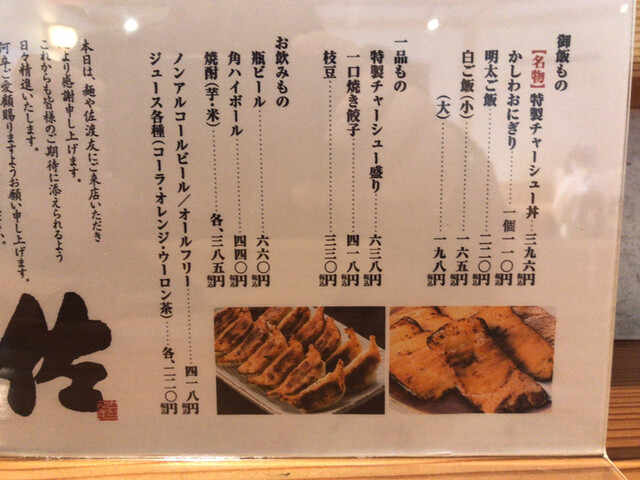 御飯もの
【名物】特製チャーシュー丼…三九六円税込
かしわおにぎり……一個一一〇円税込
明太ご飯……二二〇円税込
白ご飯(小)……一六五円税込
(大)……一九八円税込
一品もの
特製チャーシュー盛り…六三八円税込
一口焼き餃子……四一八円税込
枝豆……三三〇円税込
お飲みもの
瓶ビール……六六〇円税込
角ハイボール……四四〇円税込
焼酎(芋・米)……各、三八五円税込
ノンアルコールビール/オールフリー……四一八円税込
ジュース各種(コーラ・オレンジ・ウーロン茶)……各、二二〇円税込
本日は、麺や佐波友にご来店いただき
より感謝申し上げます。
これからも皆様のご期待に添えられるよう
日々精進いたします。
何卒ご愛顧賜りますようお願い申し上げます。
佐